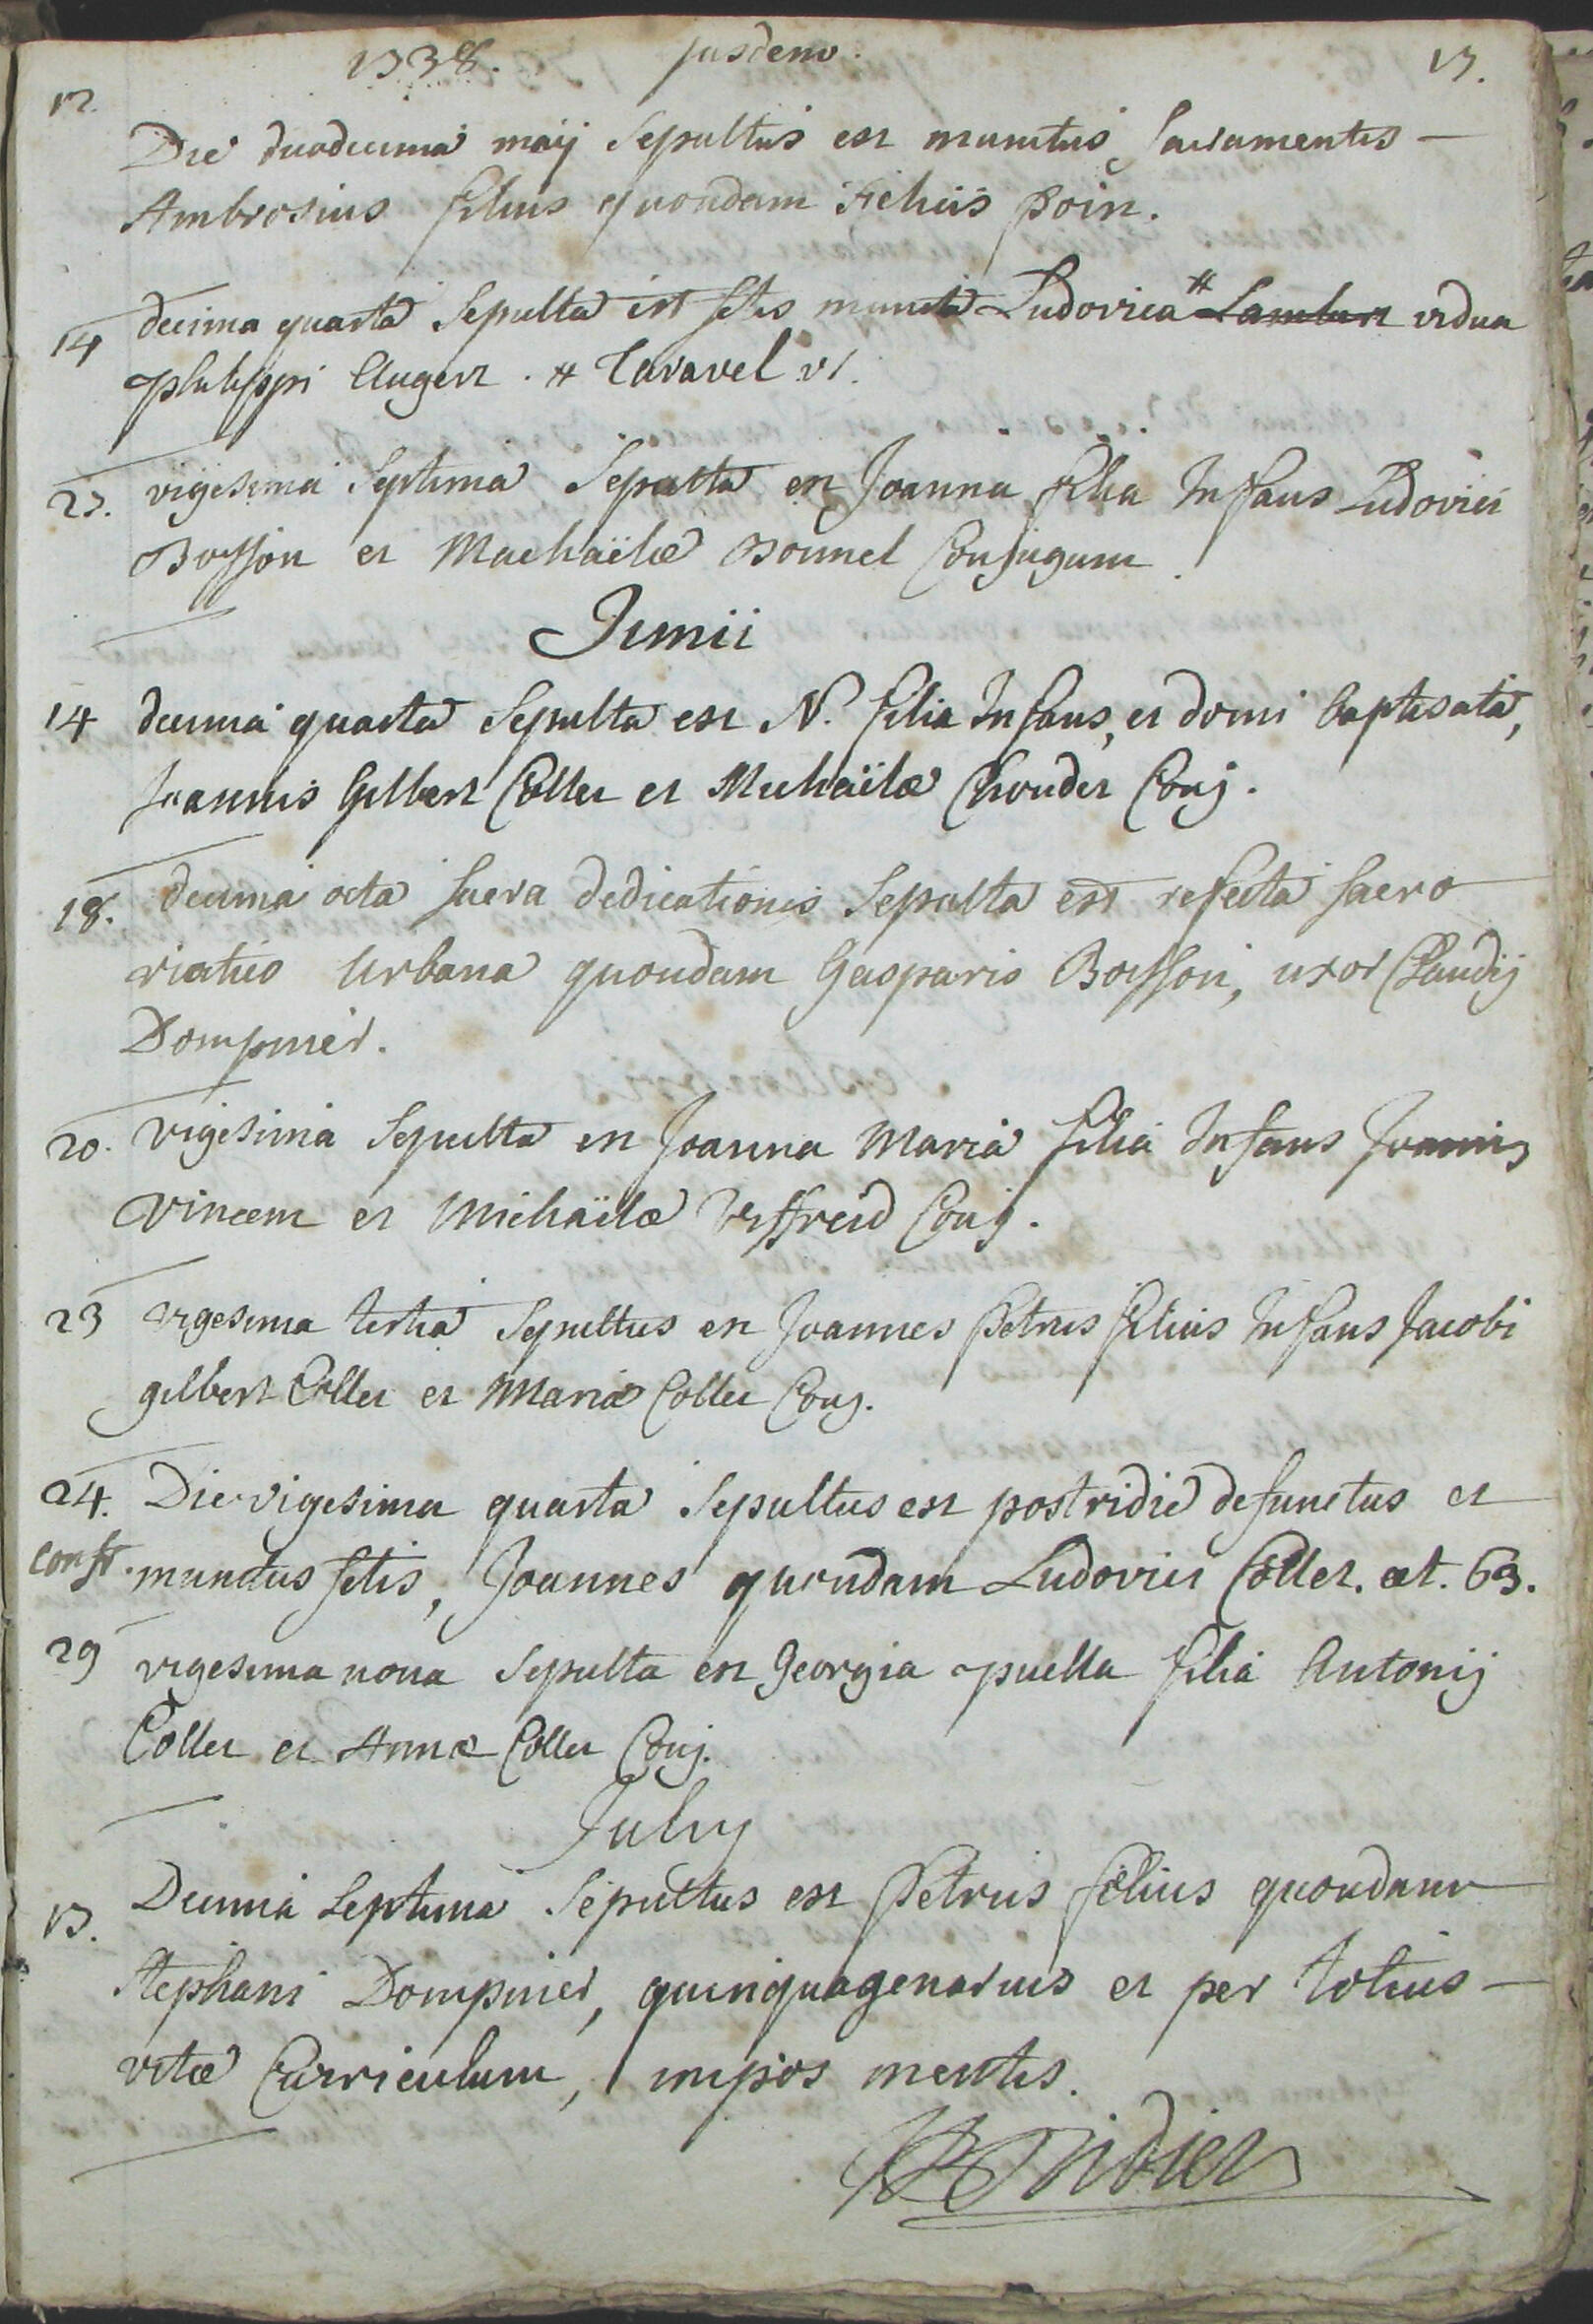 1738. jusdem. 17.
12. Die duodecima maij Sepultus est munitus Sacramentis —
Ambrosius filius quondam Fieliüs Boin.
14 decima quarta Sepulta est sctis munita Ludovica # Lambert vidua
philippi Augert . # Taravel vt.
27. vigesima Septima Sepulta est Joanna filia Infans Ludovici
Bosson et Machaëlæ Bonnel Conjugum.
Junii
14 decima quarta Sepulta est N. filia Infans, et domi baptisata,
Joannis Gilbert Collet et Michaëlæ Chondet Conj.
18. decima octa sacra dedicationis Sepulta est refecta sacro
viatico Urbana quondam Gasparis Bosson, uxor Claudij
Dompnier.
20. vigesima Sepulta est Joanna Maria filia Infans Joannis
Vincem et Michaëlæ Verffreid Conj.
23 vigesima tertia Sepultus est Joannes Petrus filius Infans Jacobi
gilbert Collet et Mariæ Collet Conj.
24. Die vigesima quarta Sepultus est postridie defunctus et
confr. munitus sctis, Joannes quondam Ludovici Collet. æt. 63.
29 vigesima nona Sepulta est Georgia puella filia Antonij
Collet et Annæ Collet Conj.
Julij
17. Decima Septima Sepultus est Petrus filius quondam
Stephani Dompnier, quinquagenarius et per totius —
vitæ Curriculum, impos mentis.
Didier